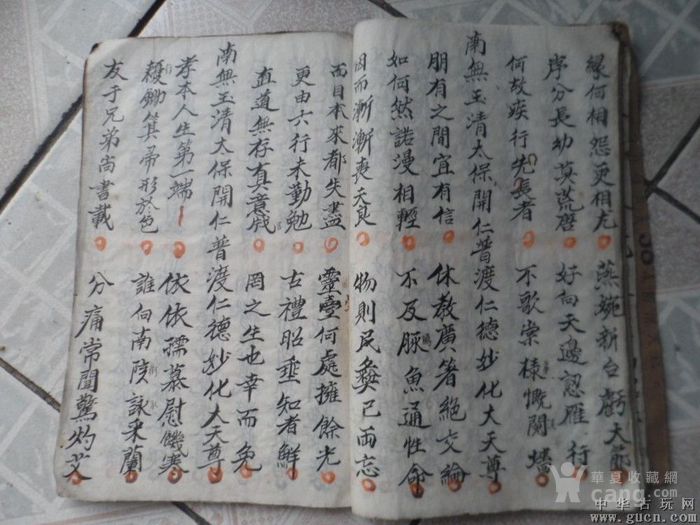 緣何相怨更相尤 燕婉新台虧大
序分長幼莫荒唐 好向天邊認雁行
何故疾行先長者 不歌棠棣慨鬩墻
南無玉清太保開仁普渡仁德妙化大天尊
朋有之間宜有信 休教廣著絕交論
如何然諾漫相輕 不及豚魚通性命
因而漸漸喪天良 物則民彝已両忘
面目本來都失盡 靈臺何處擁餘光
更由六行未勤勉 古禮昭垂知者鮮
直道無存真意 罔之生也幸而免
南無玉清太保開仁普渡仁德妙化大天尊
孝本人生第一端 依依孺慕慰饑寒
耰鋤箕帚形於色 誰向南陔詠采蘭
友于兄弟尚書載 分痛常聞驚灼艾
華夏收藏網
cang.com
中华古玩网
www.gucn.com